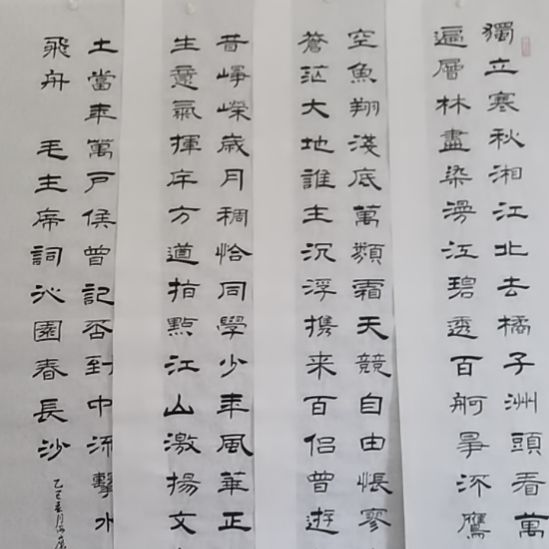 獨立寒秋湘江北去橘子洲頭看萬
遍層林盡染漫江碧透百舸爭流鷹
空魚翔淺底萬類霜天競自由悵寥
蒼茫大地誰主沉浮携来百侶曾遊
昔崢嶸歲月稠恰同學少年風華正
生意氣揮斥方遒指點江山激揚文
土當年萬戶侯曾記否到中流擊水
飛舟 毛主席詞沁園春長沙